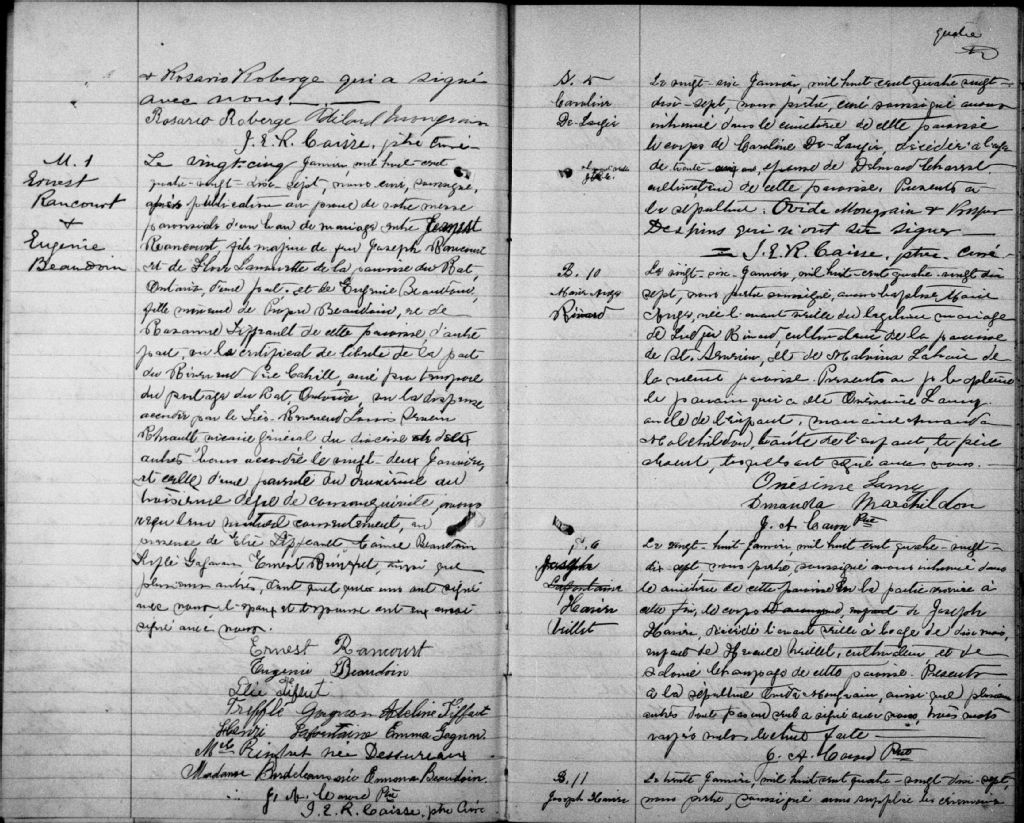 & Rosario Roberge qui a signé
avec nous.
Rosario Roberge Adélard Mongrain
J. E. R. Caisse, ptre Curé
M. 1
Ernest
Rancourt
+
Eugenie
Beaudoin
Le vingt-cinq Janvier, mil huit cent
quatre-vingt-dix-sept, nous curé, soussigné,
après publication au prône de notre messe
paroissiale d'un ban de mariage entre Ernest
Rancourt, fils majeur de feu Joseph Rancourt
et de Flore Lamarette de la paroisse du Rat,
Ontario, d'une part, et de Eugenie Beaudoin,
fille mineure de Prosper Beaudoin, et de
Rosanna Tiffault de cette paroisse d'autre
part, vu le certificat de liberté de la part
du Révérend Père Cahill, curé pro tempore
du portage du Rat, Ontario, vu la dispense
accordée par le Très-Révérend Louis
Rheault vicaire général du diocèse
accordé le vingt-deux Janvier,
et celle d'une parenté du deuxième au
troisième degré de consanguinité, nous
reçu leur mutuel consentement, en
présence de Elie Tiffault, Beaudoin
Trefflé Gagnon Ernest Rinfret, ainsi que
plusieurs autres, dont quelques uns ont signé
avec nous, l'époux et l'épouse ont aussi
signé avec nous.
Ernest Rancourt
Eugenie Beaudoin
Elie Tiffaut
Trefflé Gagnon Adeline Tiffaut
Henri Lafontaine Emma Gagnon
Rinfret née Dessureaux
Madame née Emma Beaudoin
J. A. Caron Ptre
J. E. R. Caisse, ptre Curé
quatre
S. 5
Caroline
De-Laugier
Le vingt-six Janvier, mil huit cent quatre vingt-
dix-sept, nous prêtre, curé soussigné avons
inhumé dans le cimetière de cette paroisse
le corps de Caroline De-Laugier, décédée à l'age
de trente ans, épouse de
cultivateur de cette paroisse. Présents à
la sépulture: Ovide Mongrain & Prosper
Despins qui n'ont su signer
J. E. R. Caisse, ptre. curé
B. 10
Marie Anges
Rivard
Le vingt-six Janvier, mil huit-cent quatre-vingt dix
sept, nous prêtre soussigné, avons baptisé Marie
Anges, née l'avant veille du légitime mariage
de Ludger Rivard, cultivateur de la paroisse
de St. Séverin, et de Malvina Lahaie de
la même paroisse. Présents au
le parrain qui a été Onésime Lamy
oncle de l'enfant, marraine Amanda
Marchildon, tante de l'enfant, le père
absent, lesquels ont signé avec nous.
Onésime Lamy
Amanda Marchildon
J. A. Caron Ptre
S. 6
Joseph
Lafontaine
Henri
Veillet
Le vingt-huit Janvier, mil huit cent quatre-vingt-
dix sept nous prêtre, soussigné avons inhumé dans
le cimetière de cette paroisse en la partie réservée à
cette fin, le corps de Joseph
Henri, décédé l'avant veille à l'age de dix mois,
enfant de Veillet, cultivateur et de
de cette paroisse. Présents
à la sépulture Ovide Mongrain, ainsi que plusieurs
autres dont pas un seul a signé avec nous, trois mots
rayés nuls lecture faite
J. A. Caron Ptre
B. 11
Joseph Henri
Le trente Janvier, mil huit cent quatre-vingt-dix-sept,
nous prêtre, soussigné avons suppléé les cérémonies